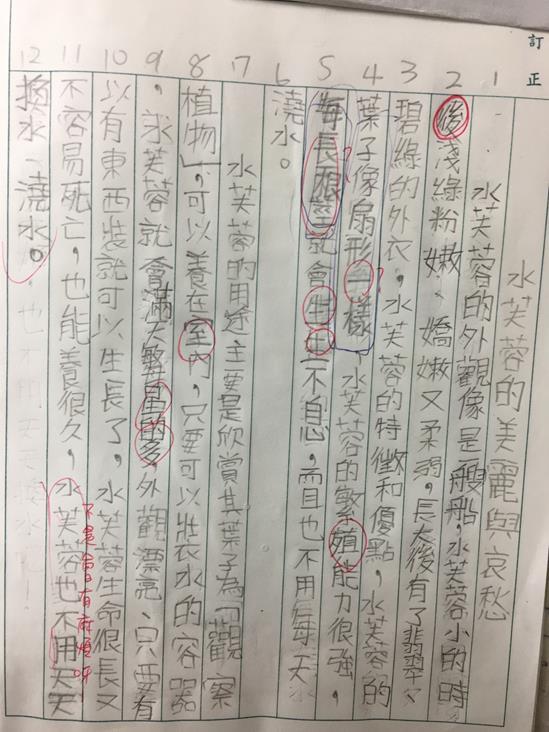 訂正
1
2
3
4
5
6
7
8
9
10
11
12
水芙蓉的美麗與哀愁
水芙蓉的外觀像是一艘船,水芙蓉小的時
後淺綠粉嫩、嬌嫩又柔弱,長大後有了翡翠、
碧綠的外衣,水芙蓉的特徵和優點,水芙蓉的
葉子像扇形一樣,水芙蓉的繁殖能力很強,
每長根莖就會生生不息,而且也不用每天
澆水。
水芙蓉的用途主要是欣賞其葉子為「觀察
植物」,可以養在室內,只要可以裝水的容器
,水芙蓉就會滿天繁星的多,外觀漂亮,只要有
以有東西裝就可以生長了,水芙蓉生命很長又
不容易死亡,也能養很久,水芙蓉也不用天天
不是會有麻煩呀
換水、澆水。